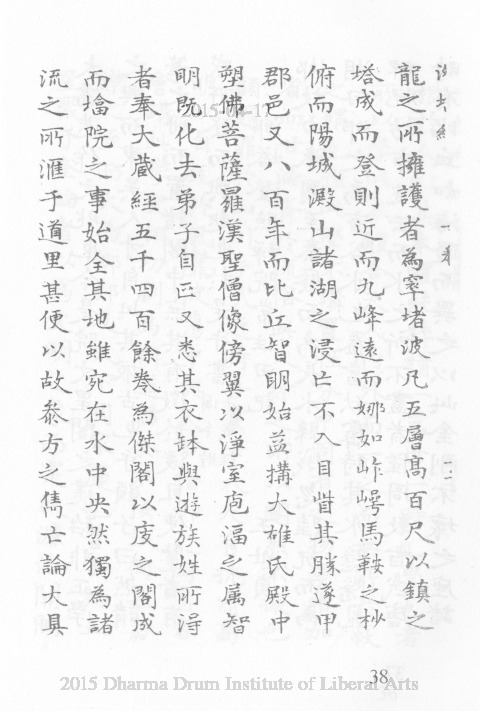 龍之所擁護者為窣堵波凡五層高百尺以鎮之
塔成而登則近而九峰遠而娜如岞崿馬鞍之杪
俯而陽城澱山諸湖之浸亡不入目眥其勝遂甲
郡邑又八百年而比丘智明始益搆大雄氏殿中
塑佛菩薩羅漢聖僧像傍翼以淨室庖湢之属智
明既化去弟子自正又悉其衣鉢與遊族姓所得
者奉大藏經五千四百餘卷為傑閣以庋之閣成
而墖院之事始全其地雖宛在水中央然獨為諸
流之所滙于道里甚便以故叅方之雋亡論大具
2015-04-17
38
2015 Dharma Drum Institute of Liberal Arts